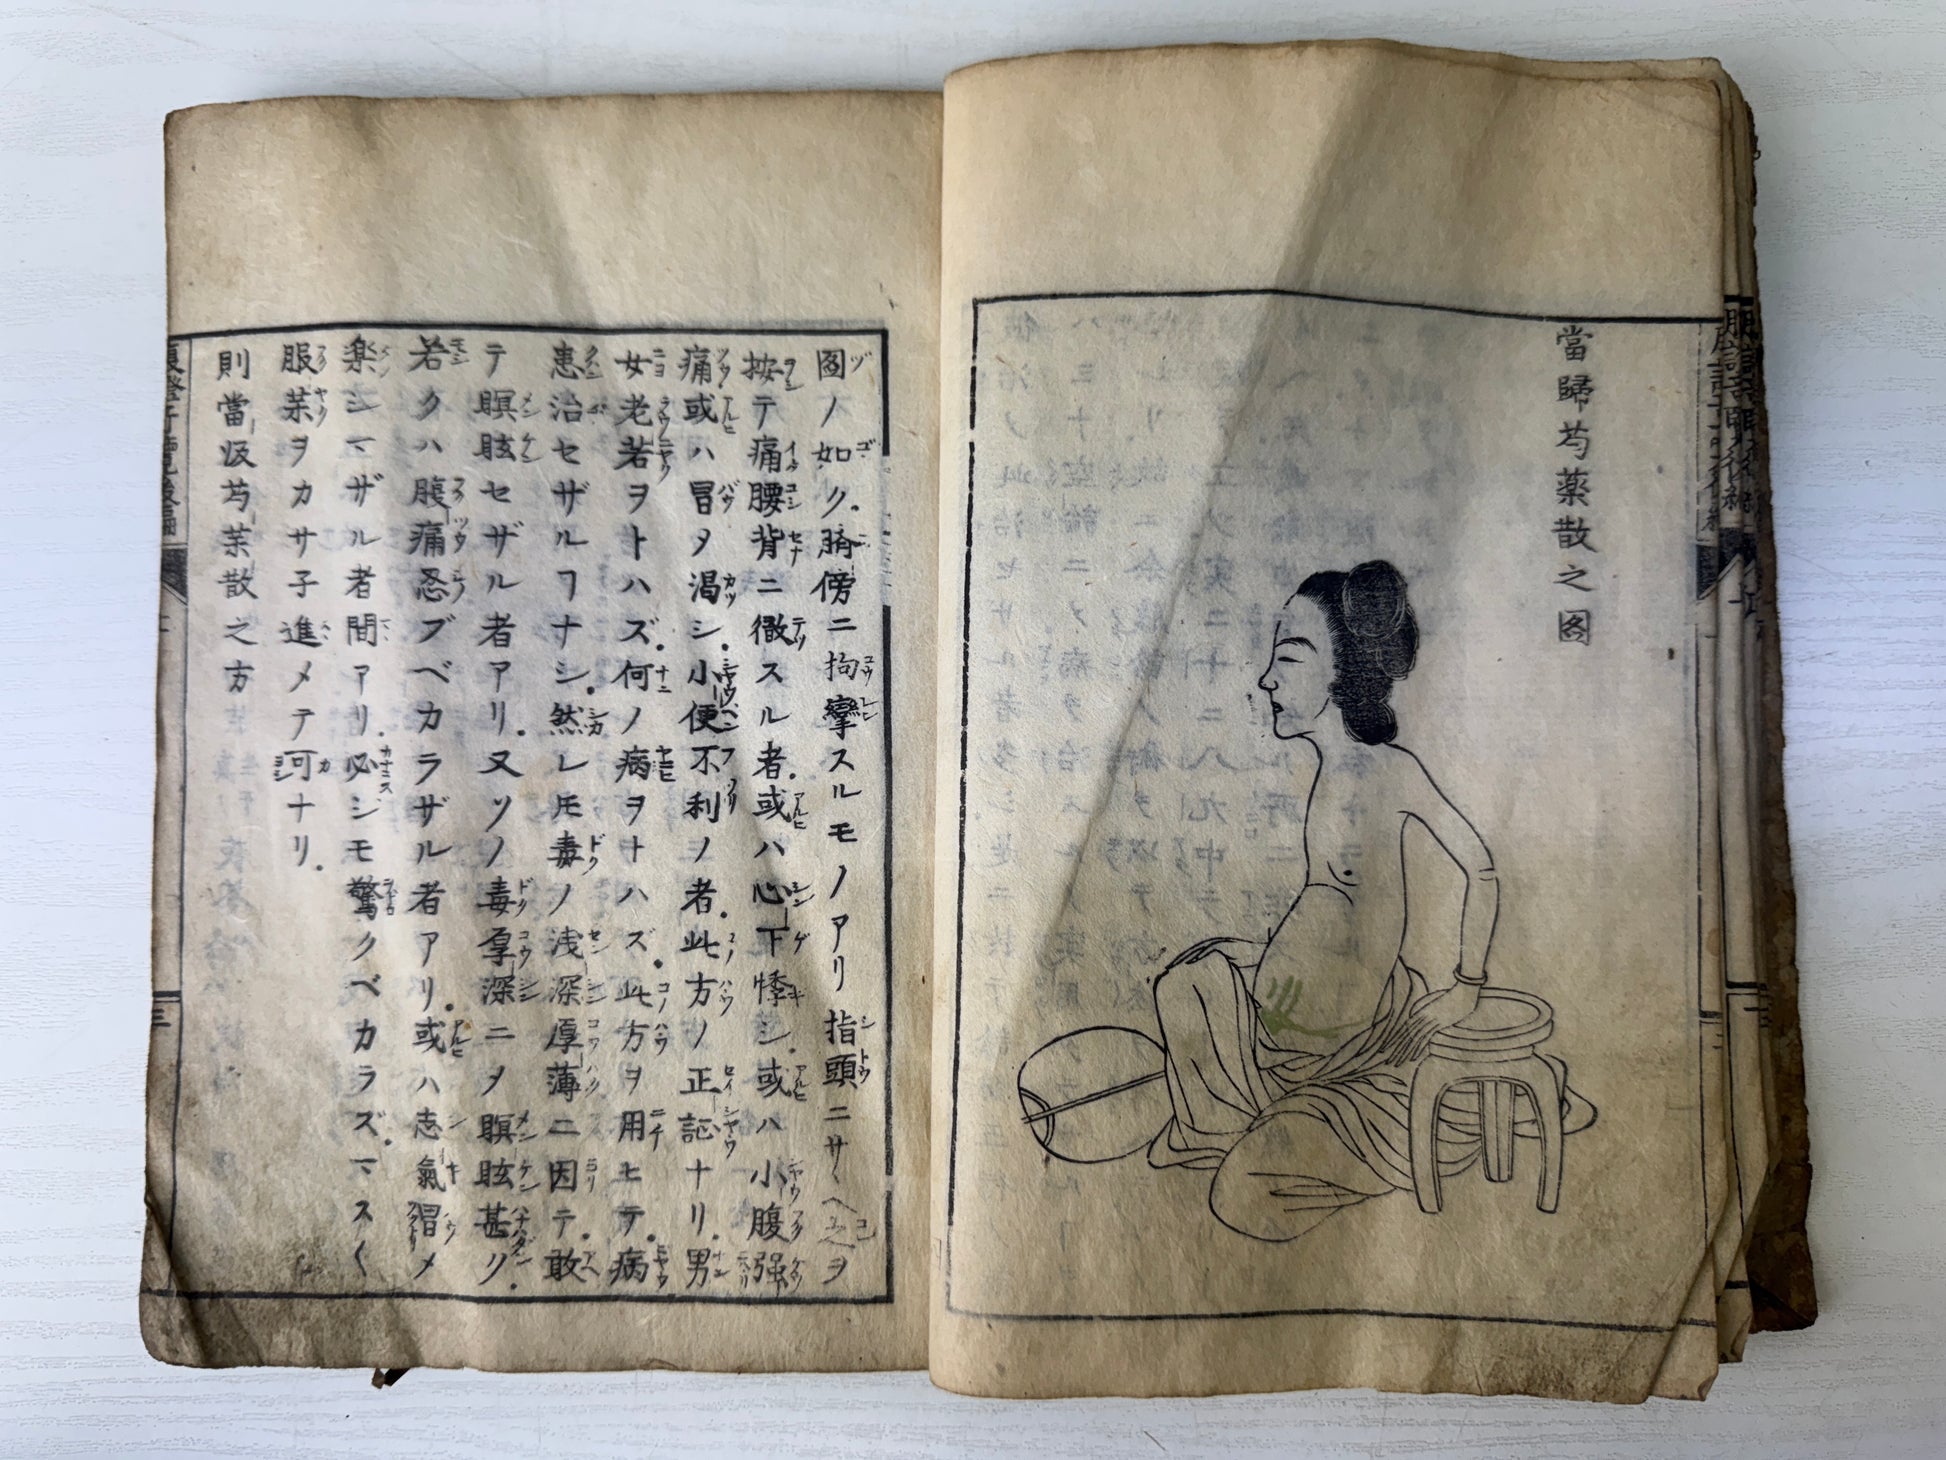 當歸芍薬散之圖
圖ノ如ク臍傍ニ拘攣スルモノアリ指頭ニサヘ之ヲ
按テ痛腰背ニ徹スル者或ハ心下悸シ或ハ小腹强
痛或ハ冒タ渇シ小便不利ノ者此方ノ正証ナリ男
女老若ヲトハズ何ノ病ヲトハズ此方ヲ用ヒテ病
患治セザルヿナシ然レ𪜈毒ノ浅深厚薄ニ因テ敢
テ瞑眩セザル者アリ又ソノ毒厚深ニヲ瞑眩甚ク
若クハ腹痛忍ブベカラザル者アリ或ハ志氣冒メ
楽シマザル者間アリ必シモ驚クベカラズマスく
服茶ヲカサ子進メテ可ナリ
則當皈芍茶散之方